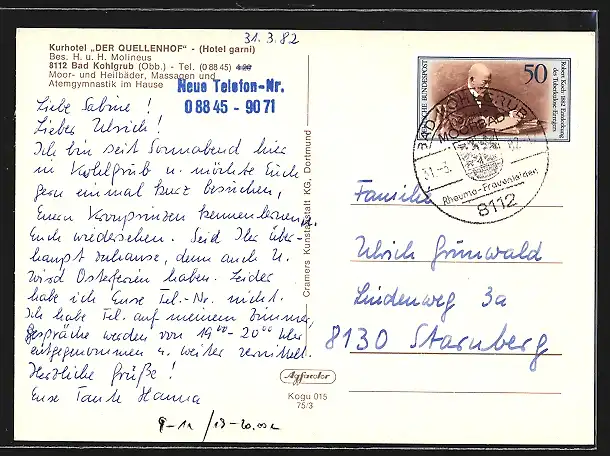 31.3.82
Kurhotel „DER QUELLENHOF" - (Hotel garni)
Bes. H. u. H. Molineus
8112 Bad Kohlgrub (Obb.) - Tel. (0 88 45) 4 20
Moor- und Heilbäder, Massagen und
Atemgymnastik im Hause
Neue Telefon-Nr.
0 88 45 - 90 71
Liebe Sabine !
Lieber Ulrich !
Ich bin seit Sonnabend hier
in Kohlgrub u. möchte Euch
gern einmal kurz besuchen,
Euren Kronprinzen kennenlernen,
Euch wiedersehen. Seid Ihr über-
haupt zuhause, denn auch U.
wird Osterferien haben. Leider
habe ich Eure Tel.-Nr. nicht.
Ich habe Tel. auf meinem Zimmer,
Gespräche werden von 19⁰⁰-20⁰⁰ Uhr
entgegengenommen u. weiter vermittelt.
Herzliche Grüße !
Eure Tante Hanna
9-11 / 19-20.00
Cramers Kunstanstalt KG, Dortmund
Agfacolor
Kogu 015
75/3
DEUTSCHE BUNDESPOST
50
Robert Koch 1882 Entdeckung
des Tuberkulose-Erregers
BAD KOHLGRUB
MOORBAD
31.-3. 82
Rheuma-Frauenleiden
8112
Familie
Ulrich Grünwald
Lindenweg 3a
8130 Starnberg